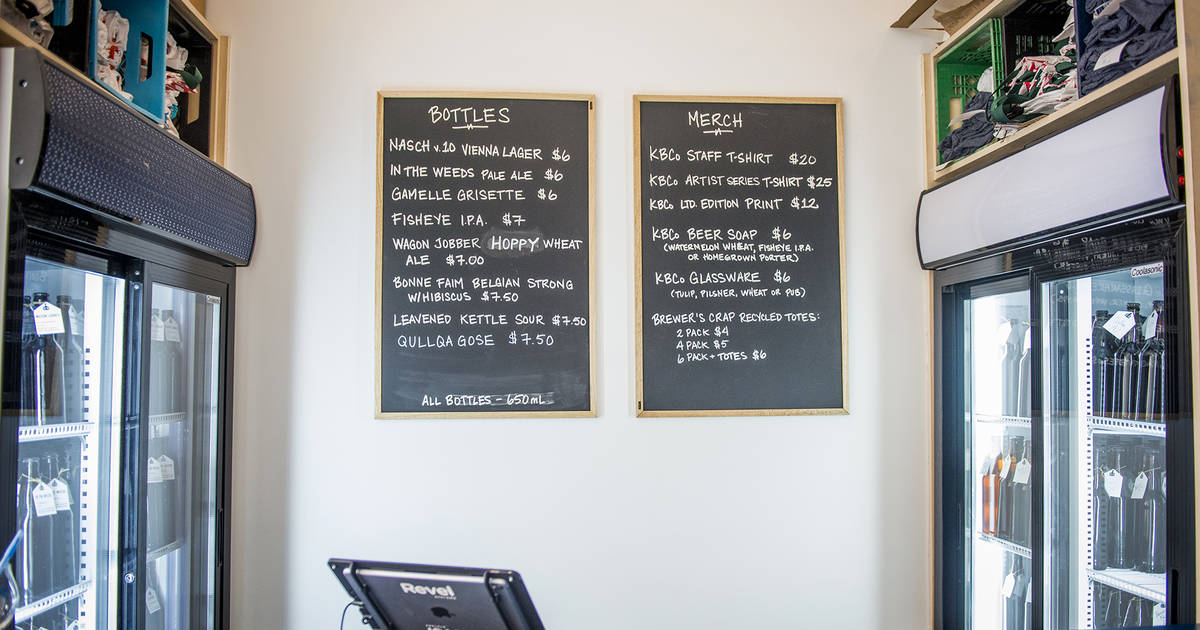 BOTTLES
NASCH v.10 VIENNA LAGER $6
IN THE WEEDS PALE ALE $6
GAMELLE GRISETTE $6
FISHEYE I.P.A. $7
WAGON JOBBER HOPPY WHEAT
ALE $7.00
BONNE FAIM BELGIAN STRONG
W/HIBISCUS $7.50
LEAVENED KETTLE SOUR $7.50
QULLQA GOSE $7.50
ALL BOTTLES - 650mL
MERCH
KBCo STAFF T-SHIRT $20
KBCo ARTIST SERIES T-SHIRT $25
KBCo LTD. EDITION PRINT $12
KBCo BEER SOAP $6
(WATERMELON WHEAT, FISHEYE I.P.A.
OR HOMEGROWN PORTER)
KBCo GLASSWARE $6
(TULIP, PILSNER, WHEAT OR PUB)
BREWER'S CRAP RECYCLED TOTES:
2 PACK $4
4 PACK $5
6 PACK + TOTES $6
Coolasonic
Revel